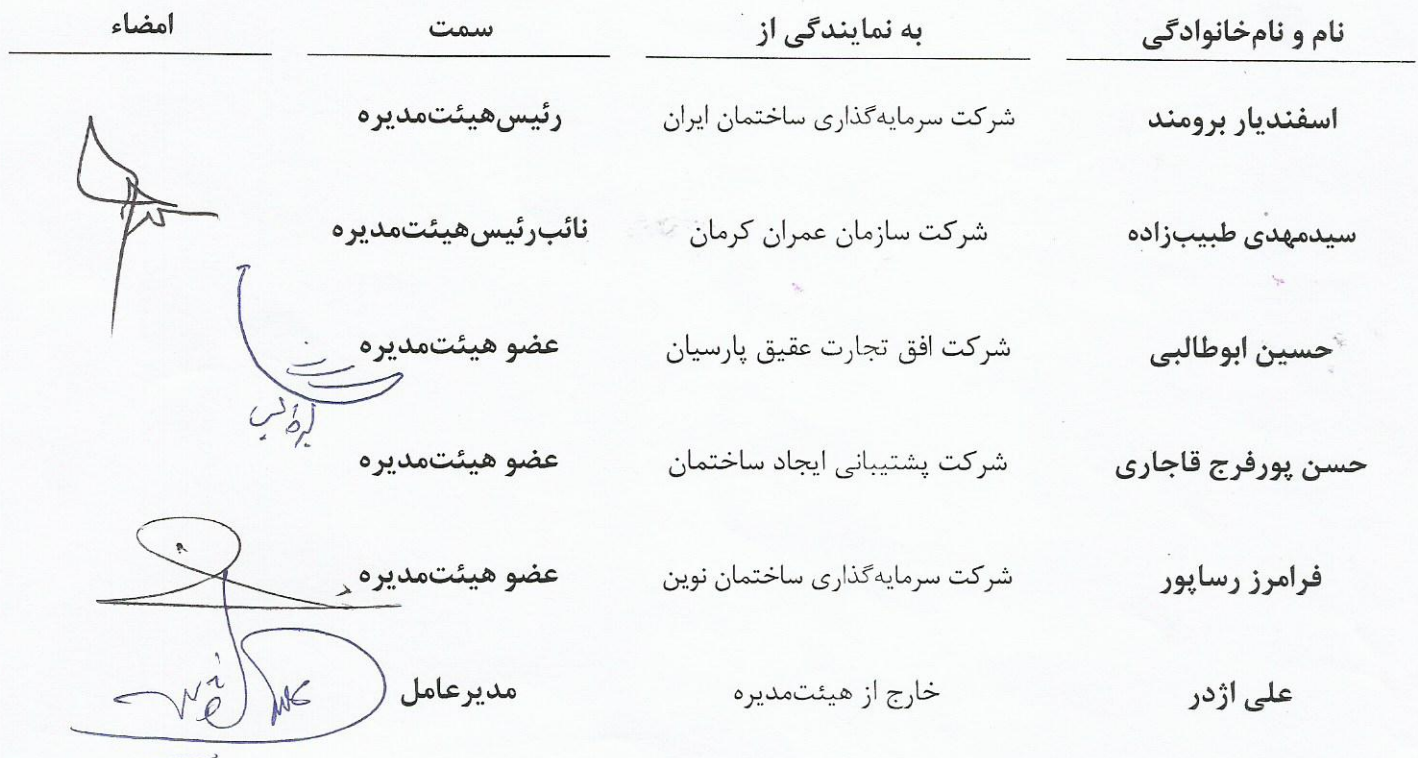 نام و نام‌خانوادگی به نمایندگی از سمت امضاء
اسفندیار برومند شرکت سرمایه‌گذاری ساختمان ایران رئیس‌هیئت‌مدیره
سیدمهدی طبیب‌زاده شرکت سازمان عمران کرمان نائب‌رئیس‌هیئت‌مدیره
حسین ابوطالبی شرکت افق تجارت عقیق پارسیان عضو هیئت‌مدیره
حسن پورفرج قاجاری شرکت پشتیبانی ایجاد ساختمان عضو هیئت‌مدیره
فرامرز رساپور شرکت سرمایه‌گذاری ساختمان نوین عضو هیئت‌مدیره
علی اژدر خارج از هیئت‌مدیره مدیرعامل